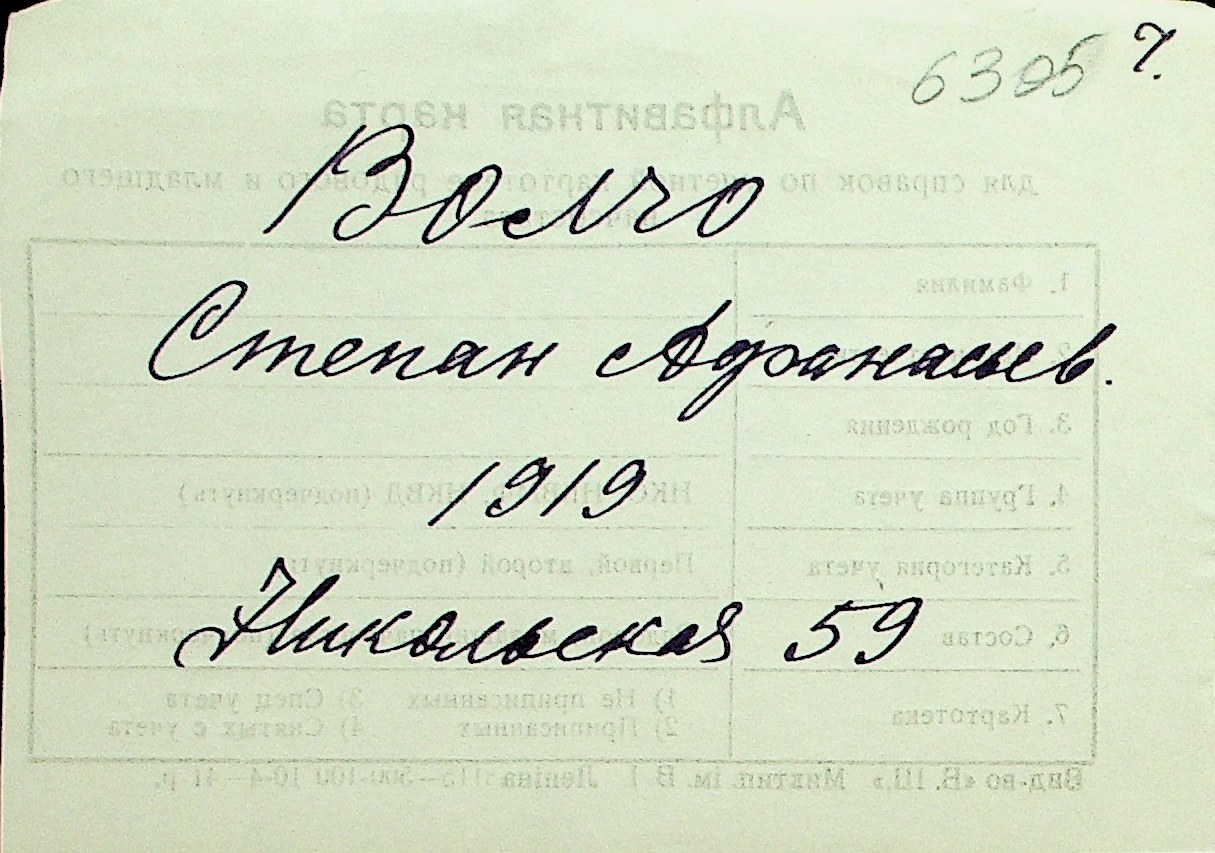 6395 7.
Волчо
Степан Афанасьев.
1919
Никольская 59
Алфавитная карта
для справок по учетной картотеке рядового и младшего
1. Фамилия
3. Год рождения
4. Группа учета НКО, НКВМФ, НКВД (подчеркнуть)
5. Категория учета Первой, второй (подчеркнуть)
6. Состав (подчеркнуть)
7. Картотека 1) Не приписанных 3) Спец учета
2) Приписанных 4) Снятых с учета